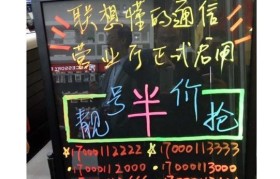 联想懂的通信
营业厅正式启用
靓号半价抢
★17000112222 ★17000113333
★17000112000 ★17000113000